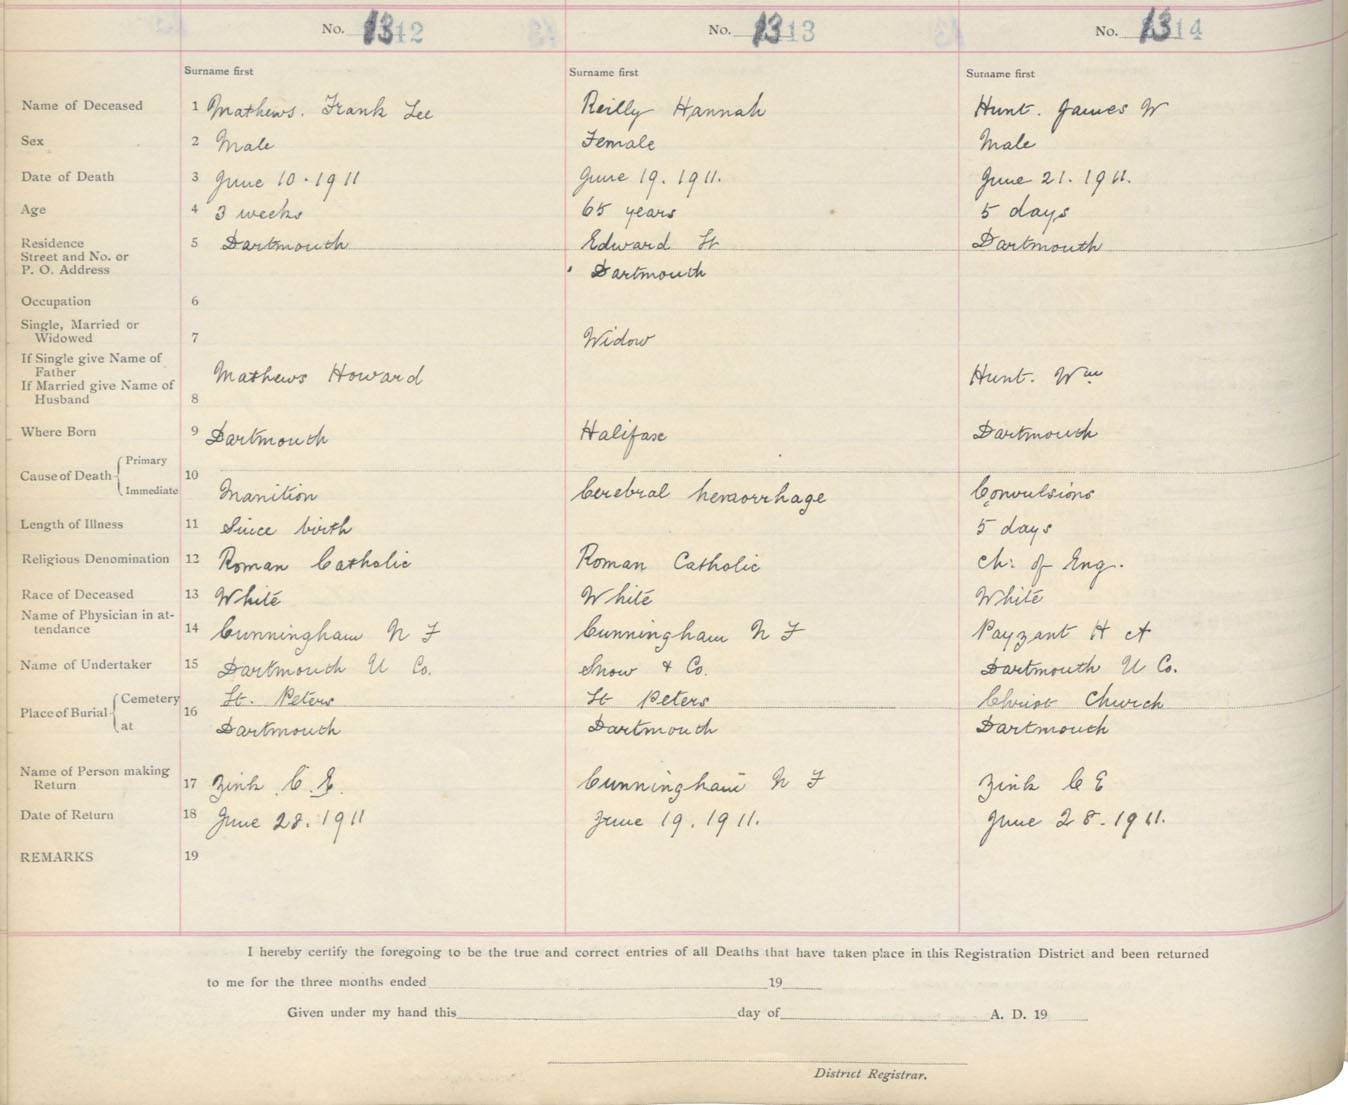 No. 1312 No. 1313 No. 1314
Surname first Surname first Surname first
Name of Deceased 1 Mathews. Frank Lee Reilly Hannah Hunt. James W
Sex 2 Male Female Male
Date of Death 3 June 10. 1911 June 19. 1911. June 21. 1911.
Age 4 3 weeks 65 years 5 days
Residence 5 Dartmouth Edward St Dartmouth
Street and No. or
P. O. Address Dartmouth
Occupation 6
Single, Married or
Widowed 7 Widow
If Single give Name of
Father Mathews Howard Hunt. Wm
If Married give Name of
Husband 8
Where Born 9 Dartmouth Halifax Dartmouth
Primary
Cause of Death 10
Immediate Inanition Cerebral hemorrhage Convulsions
Length of Illness 11 Since birth 5 days
Religious Denomination 12 Roman Catholic Roman Catholic Ch: of Eng.
Race of Deceased 13 White White White
Name of Physician in at-
tendance 14 Cunningham N F Cunningham N F Payzant H A
Name of Undertaker 15 Dartmouth U Co. Snow & Co. Dartmouth U Co.
Cemetery St. Peters St Peters Christ Church
Place of Burial 16
at Dartmouth Dartmouth Dartmouth
Name of Person making
Return 17 Zink C. E. Cunningham N F Zink C E
Date of Return 18 June 28. 1911 June 19. 1911. June 28. 1911.
REMARKS 19
I hereby certify the foregoing to be the true and correct entries of all Deaths that have taken place in this Registration District and been returned
to me for the three months ended 19
Given under my hand this day of A. D. 19
District Registrar.